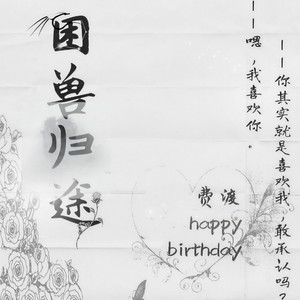 困兽归途
——你其实就是喜欢我，敢承认吗？
——嗯，我喜欢你。
费渡
happy
birthday